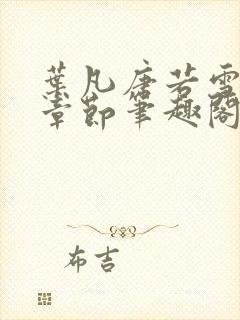 葉凡唐若雪
章節筆趣閣
布吉